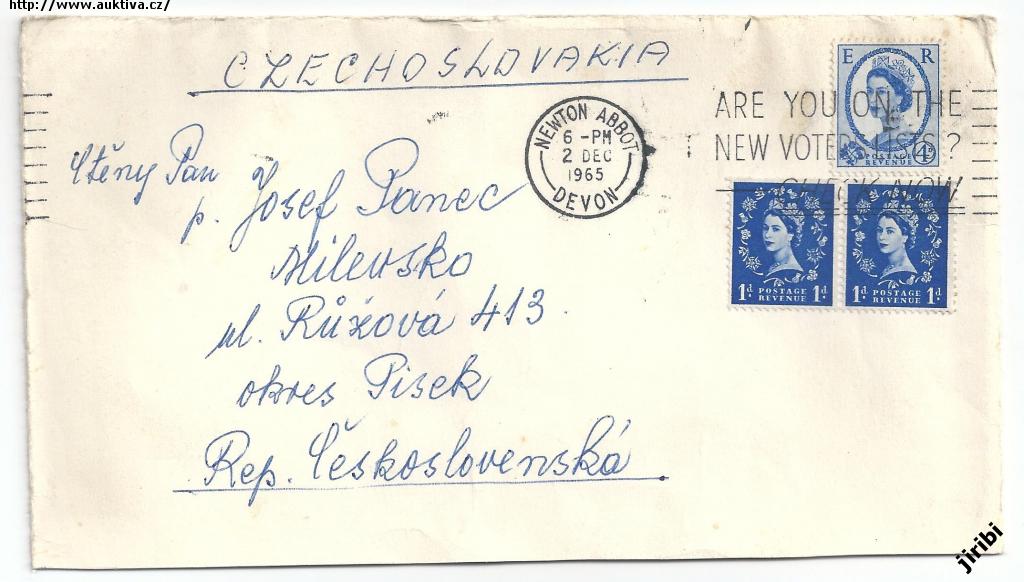 http://www.auktiva.cz/
CZECHOSLOVAKIA
E R
POSTAGE
REVENUE 4D
NEWTON ABBOT
6-PM
2 DEC
1965
DEVON
ARE YOU ON THE
NEW VOTERS LISTS?
CHECK NOW
Ctěny Pan
p. Josef Panec
Milevsko
ul. Růžová 413.
okres Pisek
Rep. Československá
1d. POSTAGE REVENUE 1d.
1d. POSTAGE REVENUE 1d.
jiribi